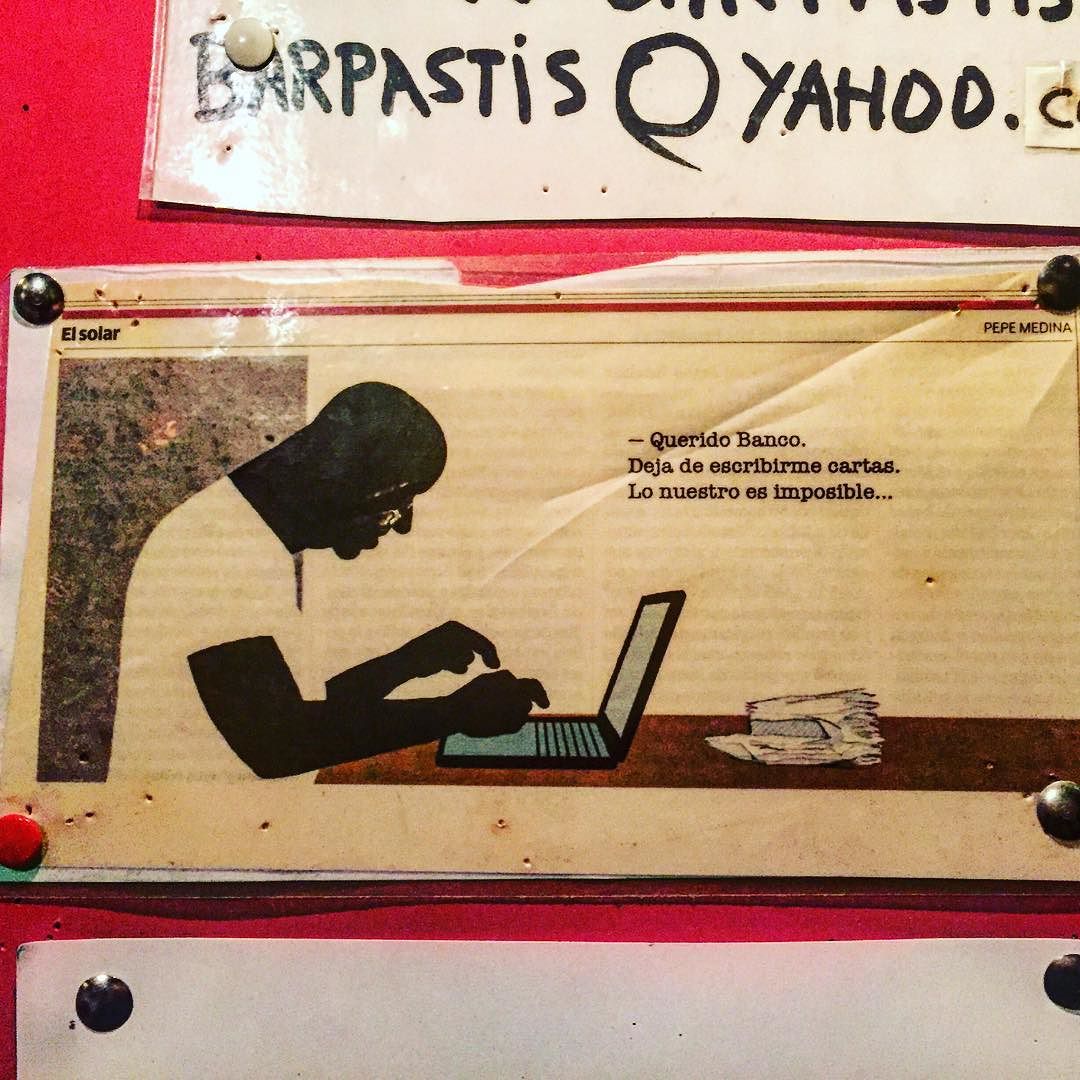 BARPASTiS @ YAHOO.
El solar
PEPE MEDINA
— Querido Banco.
Deja de escribirme cartas.
Lo nuestro es imposible...